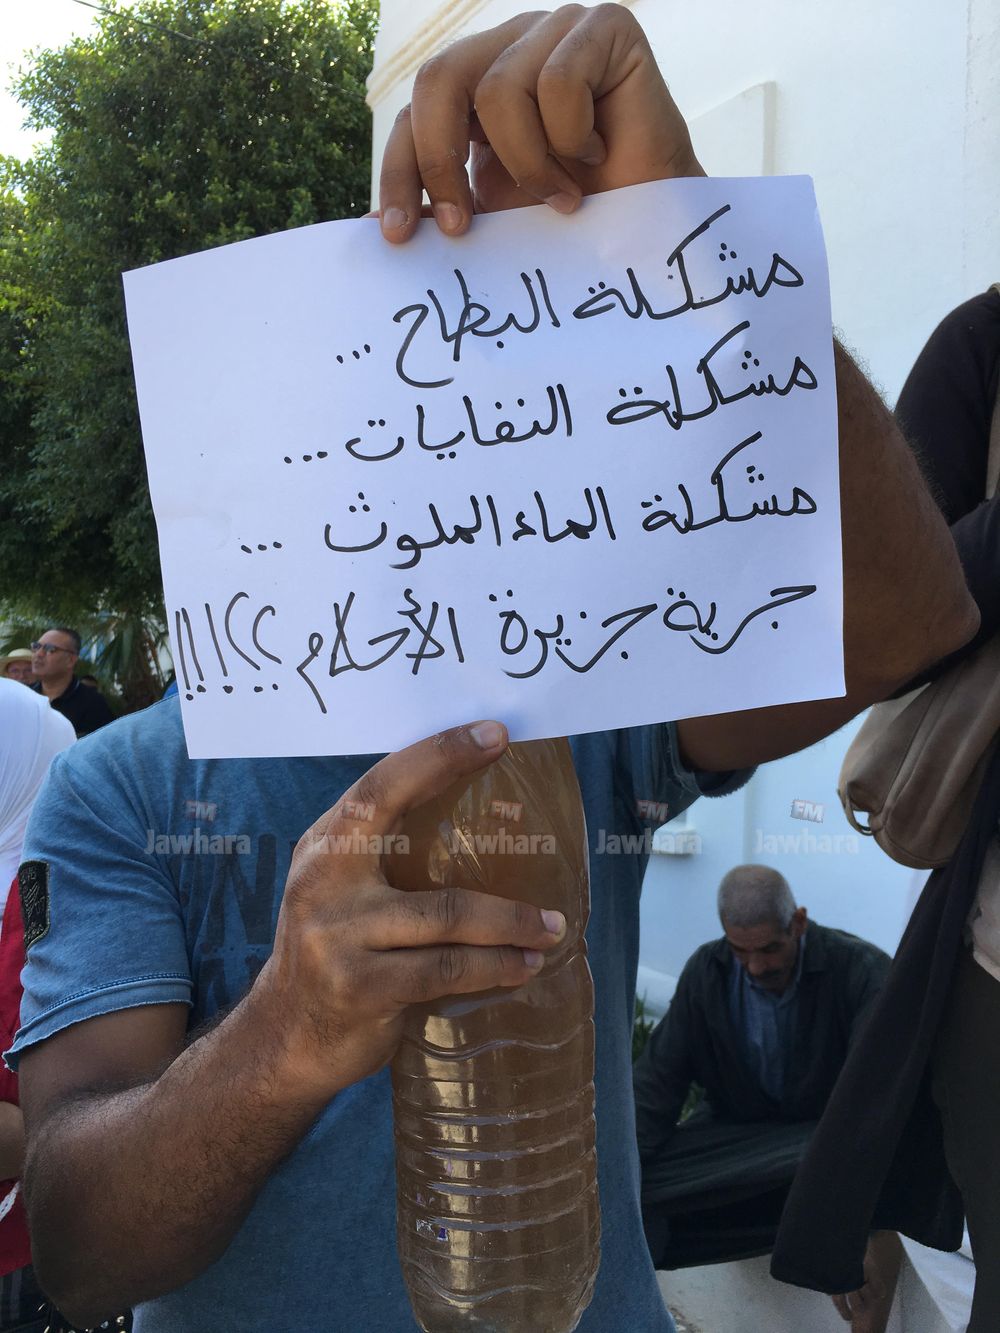 مشكلة البطاح ...
مشكلة النفايات ...
مشكلة الماء الملوث ...
جربة جزيرة الأحلام ؟؟!!!!
FM FM FM FM FM
Jawhara Jawhara Jawhara Jawhara Jawhara